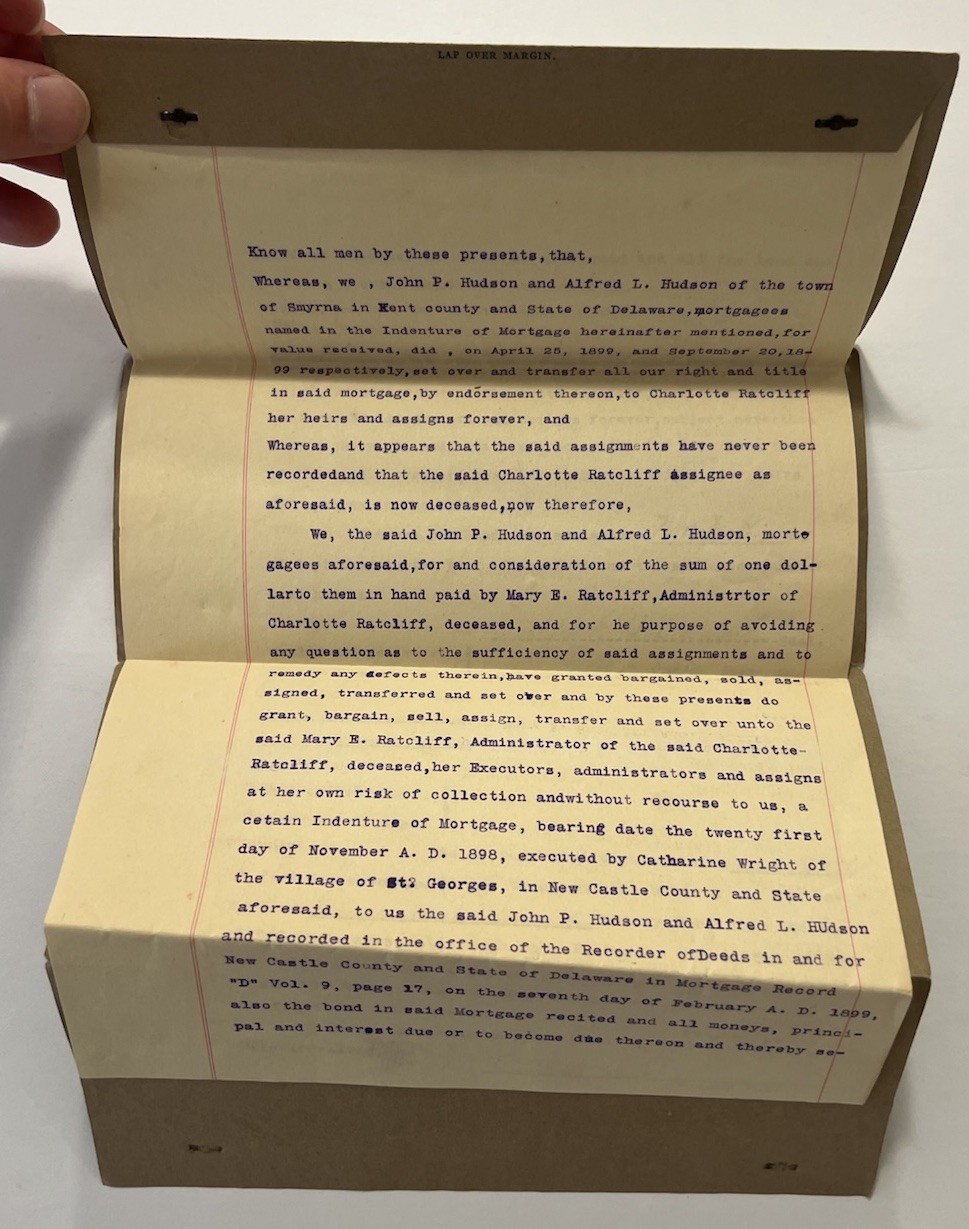 LAP OVER MARGIN.
Know all men by these presents,that,
Whereas, we , John P. Hudson and Alfred L. Hudson of the town
of Smyrna in Kent county and State of Delaware,mortgagees
named in the Indenture of Mortgage hereinafter mentioned,for
value received, did , on April 25, 1899, and September 20,18-
99 respectively,set over and transfer all our right and title
in said mortgage,by endorsement thereon,to Charlotte Ratcliff
her heirs and assigns forever, and
Whereas, it appears that the said assignments have never been
recordedand that the said Charlotte Ratcliff assignee as
aforesaid, is now deceased,now therefore,
We, the said John P. Hudson and Alfred L. Hudson, morte
gagees aforesaid,for and consideration of the sum of one dol-
larto them in hand paid by Mary E. Ratcliff,Administrtor of
Charlotte Ratcliff, deceased, and for he purpose of avoiding
any question as to the sufficiency of said assignments and to
remedy any defects therein,have granted bargained, sold, as-
signed, transferred and set over and by these presents do
grant, bargain, sell, assign, transfer and set over unto the
said Mary E. Ratcliff, Administrator of the said Charlotte-
Ratcliff, deceased,her Executors, administrators and assigns
at her own risk of collection andwithout recourse to us, a
cetain Indenture of Mortgage, bearing date the twenty first
day of November A. D. 1898, executed by Catharine Wright of
the village of St? Georges, in New Castle County and State
aforesaid, to us the said John P. Hudson and Alfred L. HUdson
and recorded in the office of the Recorder ofDeeds in and for
New Castle County and State of Delaware in Mortgage Record
"D" Vol. 9, page 17, on the seventh day of February A. D. 1899,
also the bond in said Mortgage recited and all moneys, princi-
pal and interest due or to become due thereon and thereby se-